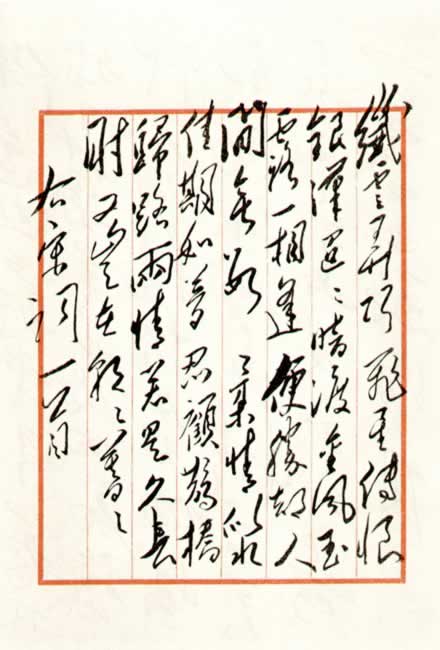 纖雲弄巧飛星傳恨
銀漢迢〻暗渡金風玉
露一相逢便勝却人
間無數柔情似水
佳期如夢忍顧鵲橋
歸路兩情若是久長
時又豈在朝〻暮〻
右宋詞一首